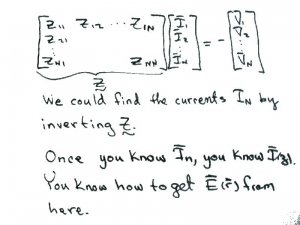 [Z11 Z12 ... Z1N] [Ī1] = - [V̄1]
[Z21] [Ī2] [V̄2]
[⋮] [⋮] [⋮]
[ZN1 ZNN] [ĪN] [V̄N]
Z
We could find the currents IN by
inverting Z.
Once you know Īn, you know Ī(z).
You know how to get Ē(r̄) from
here.